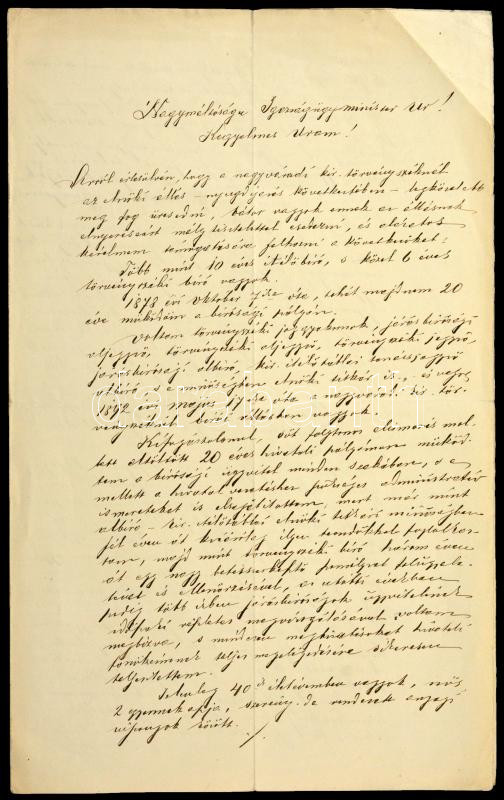 Nagyméltóságu Igazságügyminiszter Ur!
Kegyelmes Uram!
Arról értesülvén, hogy a nagyváradi kir. törvényszéknél
az elnöki állás – nyugdíjazás következtében – legközelebb
meg fog üresedni, bátor vagyok ennek az állásnak
elnyeréseért mély tisztelettel esedezni, és alázatos
kérelmem támogatására felhozni a következőket:
Több mint 10 éves itélőbíró, s közel 6 éves
törvényszéki bíró vagyok.
1878 évi október óta, tehát majdnem 20
éve működöm a bírósági pályán.
Voltam törvényszéki joggyakornok, járásbirósági
aljegyző, törvényszéki aljegyző, törvényszéki jegyző,
járásbirósági albíró, kir. itélőtáblai tanácsjegyző
albíró, s e minőségben elnöki titkár is, s végre
1892 évi május óta a nagyváradi kir. tör-
vényszéknél birói állásban vagyok.
Kifogástalanul, sőt folytonos elismerés mel-
lett eltöltött 20 éves hivatali pályámon működ-
tem a birósági ügyvitel minden szakában, s e
mellett a hivatal vezetéshez szükséges administrativ
ismereteket is elsajátitottam, mert más mint
albíró – kir. itélőtáblai elnöki titkári minőségben
fél éven át kizárólag ilyen teendőkkel foglalkoz-
tam, majd mint törvényszéki bíró három éven
át egy nagy betétszerkesztő személyzet felügyele-
tével és ellenőrzésével, az utolsó években
pedig több izben járásbiróságok ügyvitelének
időszaki megvizsgálásával voltam
megbizva, s minden megbizatásokat hivatali
főnökeimnek teljes megelégedésére sikeresen
teljesitettem.
Jelenleg 40 életévemben vagyok, nős
2 gyermek apja, szerény de rendezett anyagi
viszonyok között.
./.
Darabanth.com